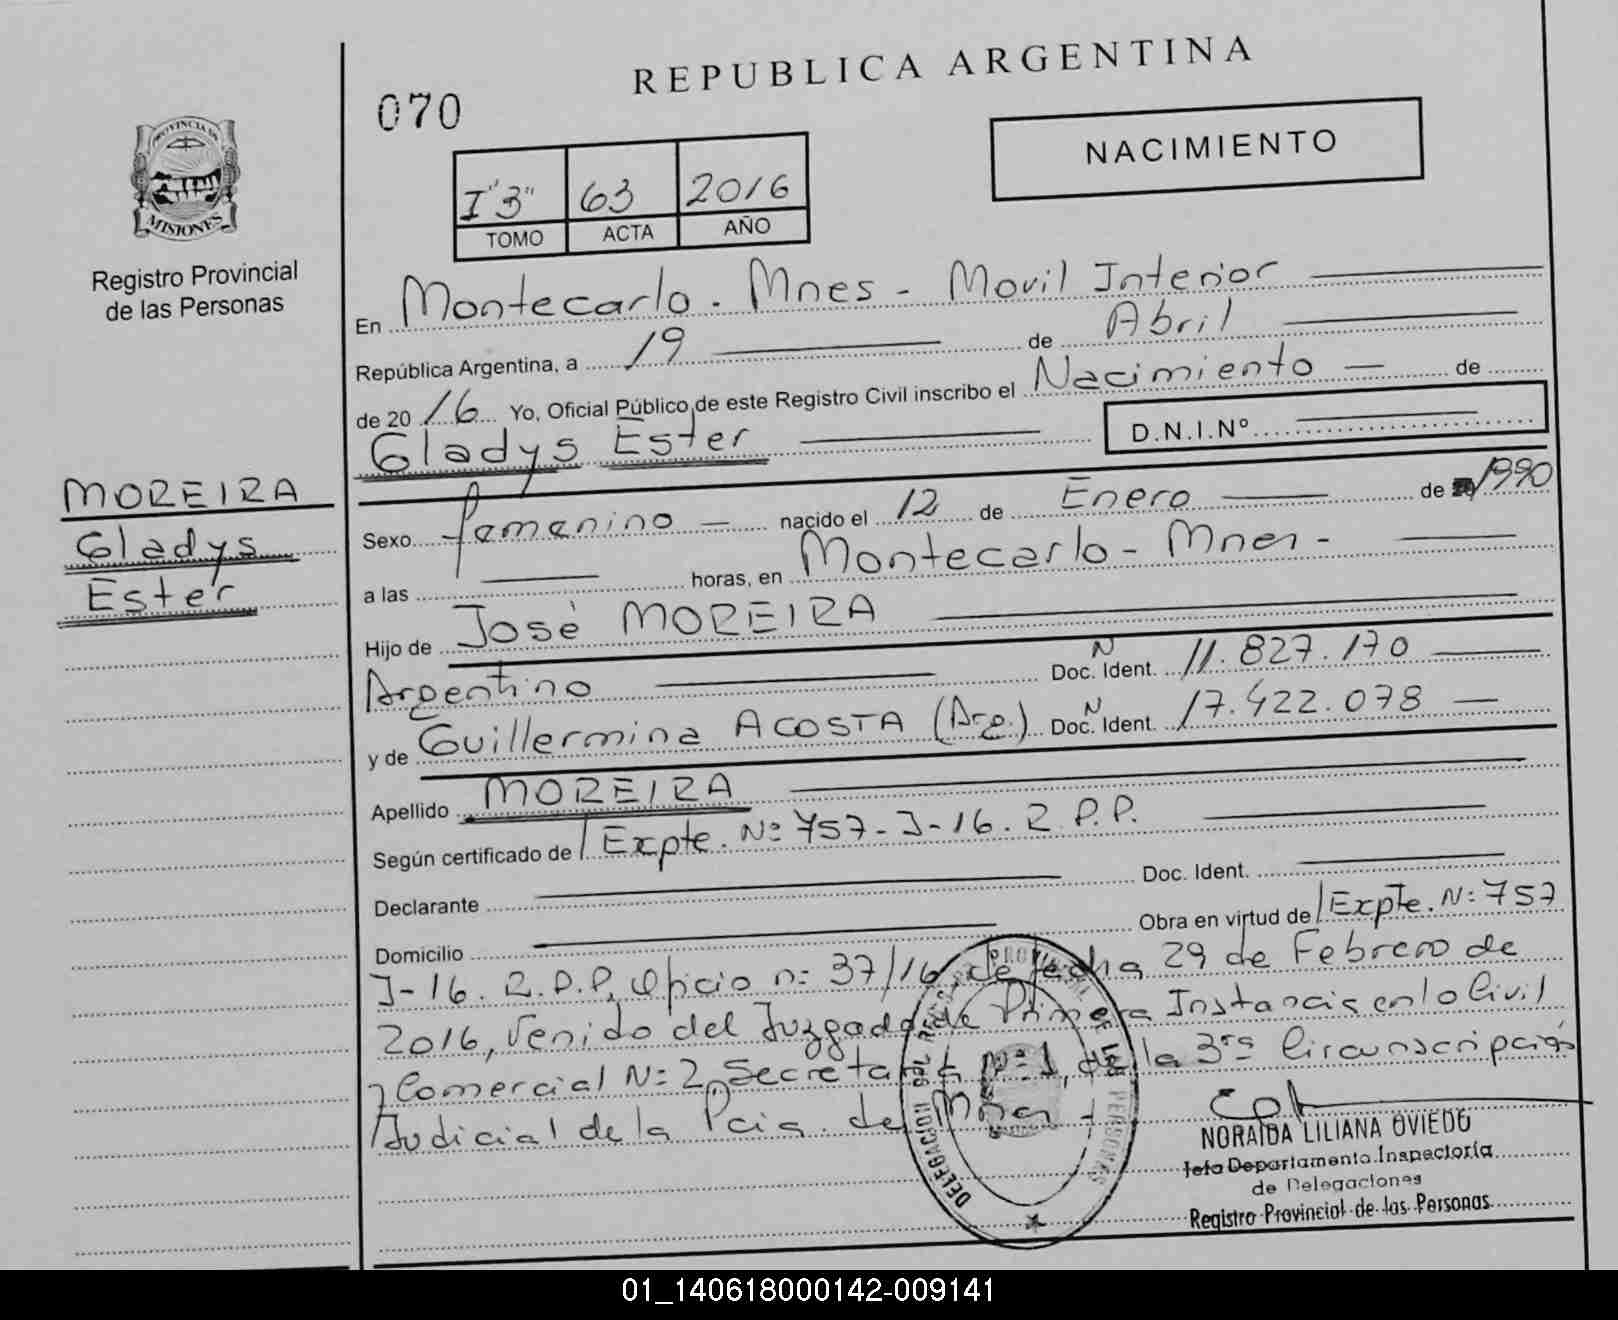 REPUBLICA ARGENTINA
070
NACIMIENTO
I "3" 63 2016
TOMO ACTA AÑO
PROVINCIA DE
MISIONES
Registro Provincial
de las Personas
En Montecarlo. Mnes - Movil Interior
República Argentina, a 19 de Abril
de 2016 Yo, Oficial Público de este Registro Civil inscribo el Nacimiento de
Gladys Ester D.N.I.Nº
MOREIRA
Gladys
Ester
Sexo femenino nacido el 12 de Enero de 1990
a las horas, en Montecarlo - Mnes -
Hijo de José MOREIRA
Argentino Doc. N Ident. 11.827.170
y de Guillermina ACOSTA (Arg.) Doc. N Ident. 17.422.078
Apellido MOREIRA
Según certificado de Expte. Nº 757-J-16. R.P.P.
Declarante Doc. Ident.
Domicilio Obra en virtud de Expte. Nº 757
J-16. R.P.P, Oficio nº 37/16 de fecha 29 de Febrero de
2016, Venido del Juzgado de Primera Instancia en lo Civil
y Comercial Nº 2, Secretaria Nº 1, de la 3ra Circunscripción
Judicial de la Pcia. de Mnes -
DELEGACION DEL REGISTRO PROVINCIAL DE LAS PERSONAS
NORAIDA LILIANA OVIEDO
Jefa Departamento Inspectoría
de Delegaciones
Registro Provincial de las Personas
01_140618000142-009141